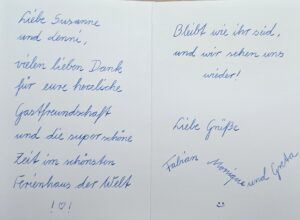 Liebe Susanne
und denni,
vielen lieben Dank
für eure herzliche
Gastfreundschaft
und die superschöne
Zeit im schönsten
Ferienhaus der Welt
!♡!
Bleibt wie ihr seid,
und wir sehen uns
wieder!
Liebe Grüße
Fabian Monique und Greta